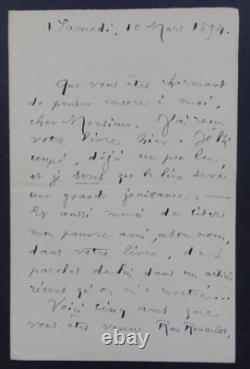 Samedi, 10 Mars 1894.
Que vous êtes charmant
de penser encore à moi,
cher Monsieur. J'ai reçu
votre livre hier. Je l'ai
coupé, déjà un peu lu,
et j'y sens que le lire sera
une grande jouissance. —
Et aussi merci de citer
mon pauvre ami, son nom,
dans votre livre, des
paroles de lui dans un article
récent qu'on m'a montré...
Voici cinq ans que
vous êtes venu Rue